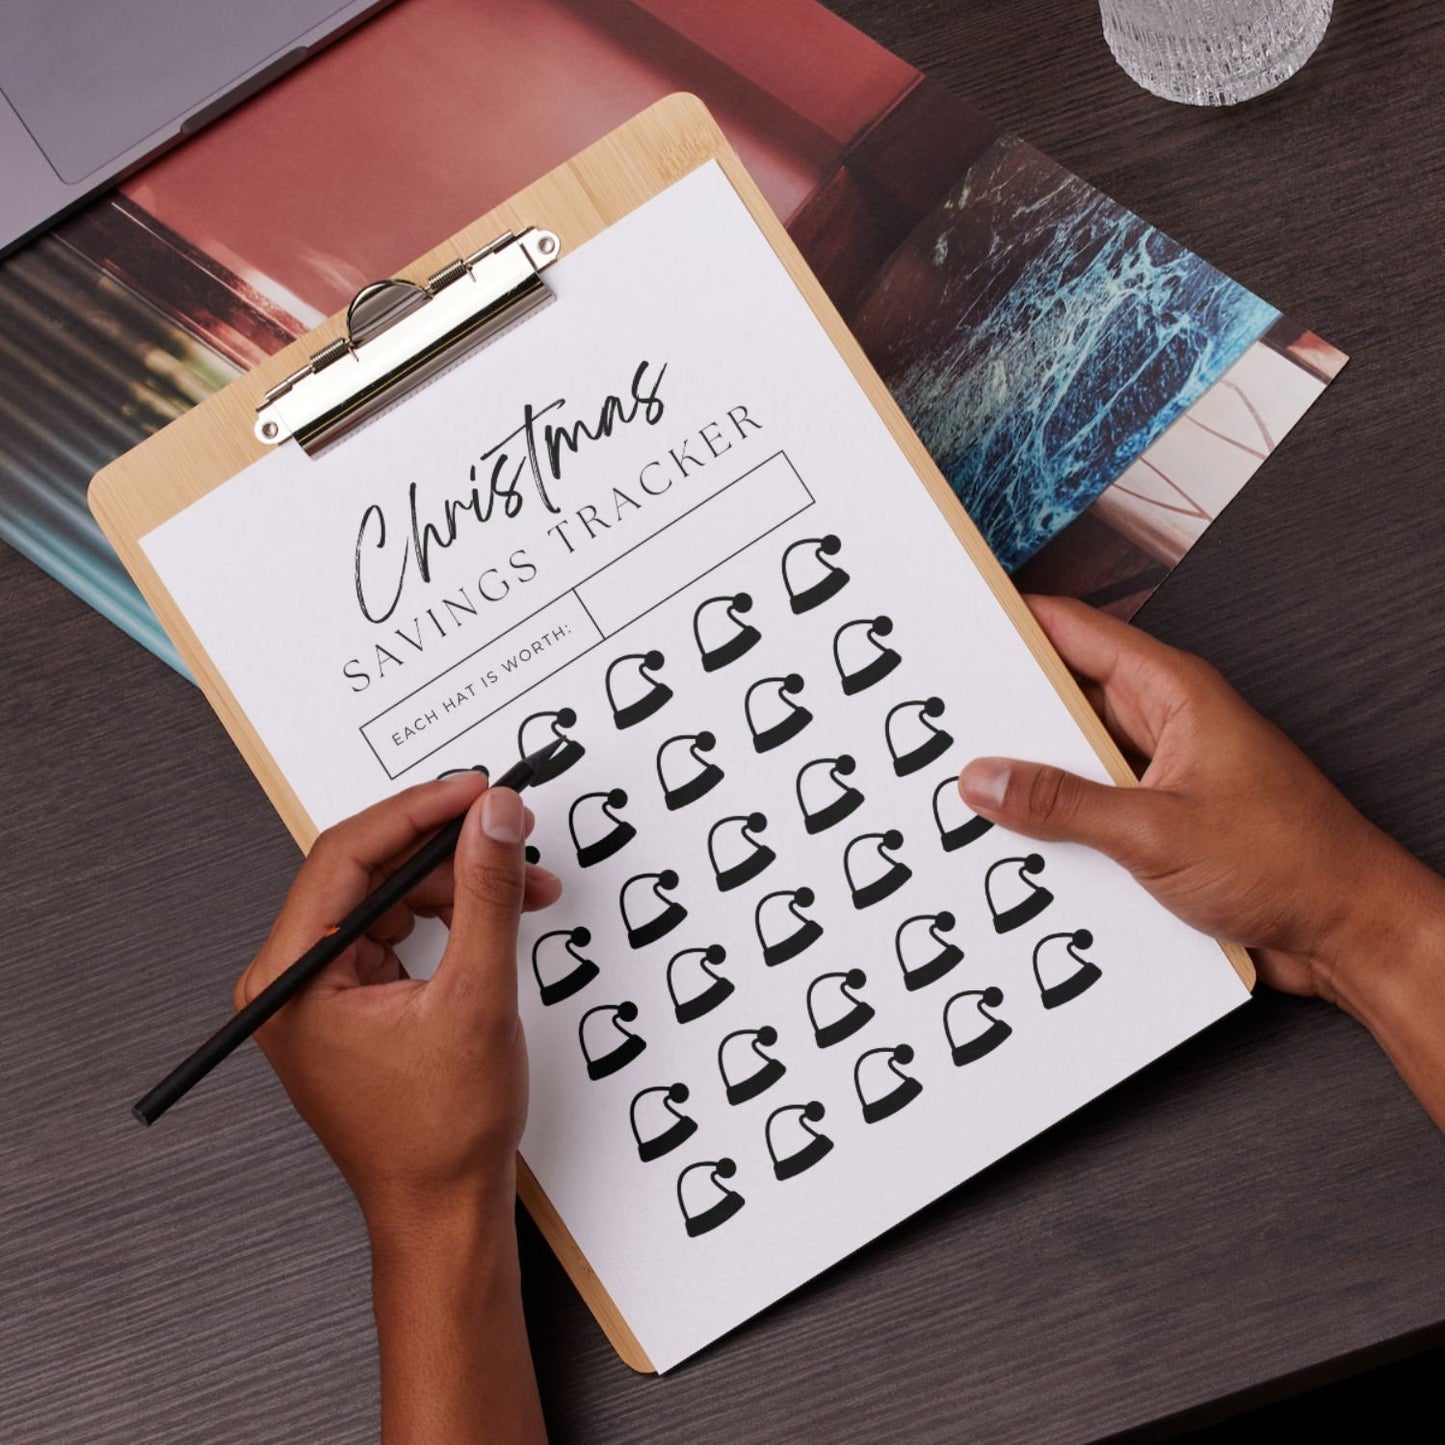 Christmas
SAVINGS TRACKER
EACH HAT IS WORTH: